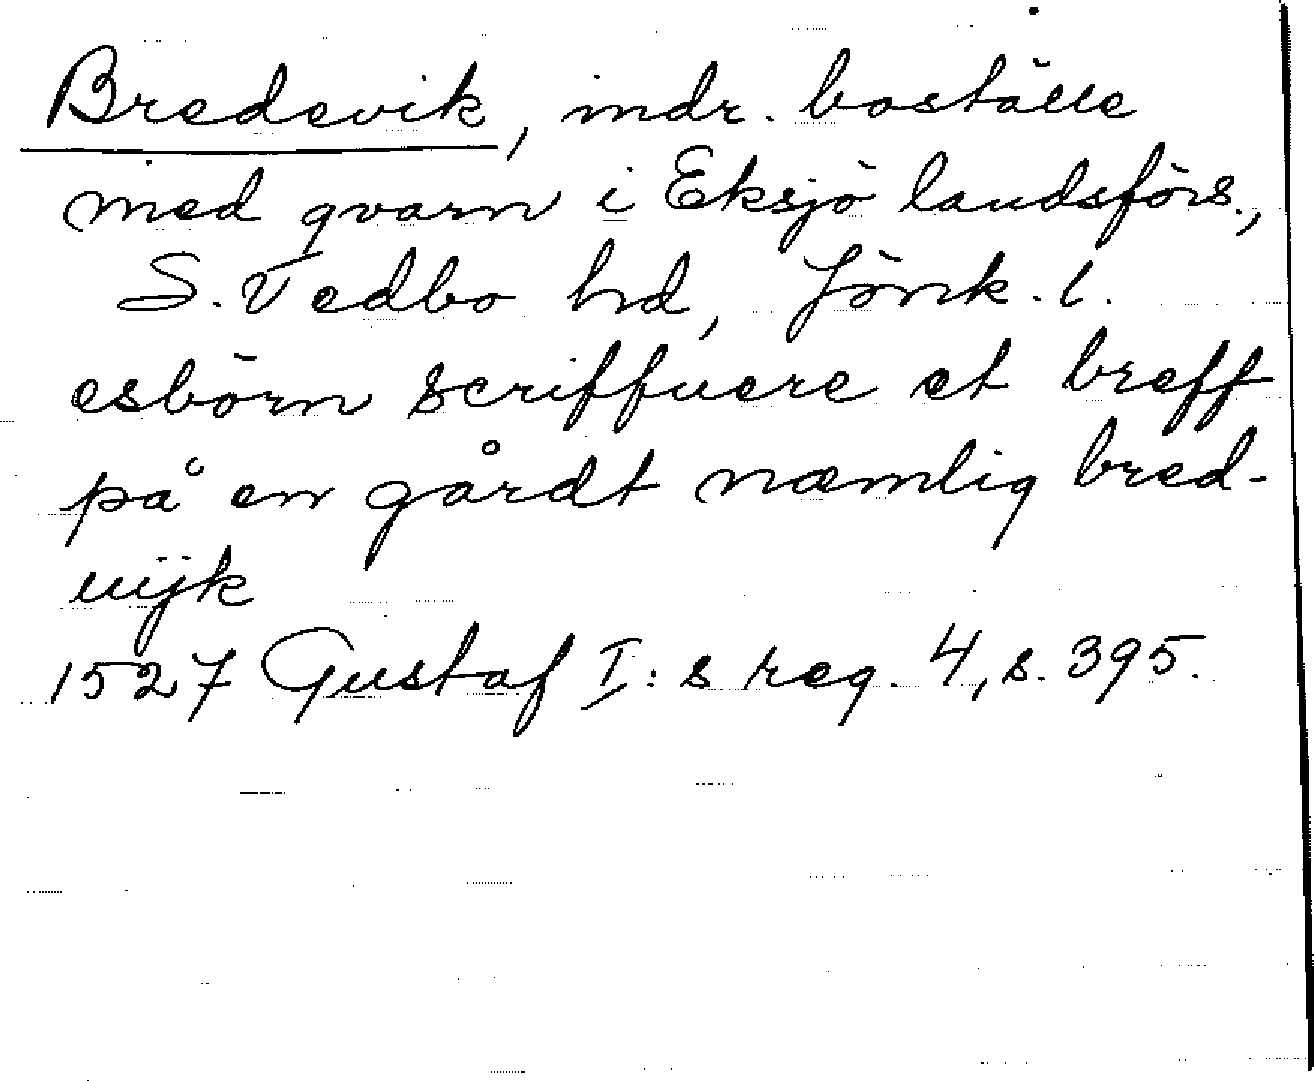 Bredevik, mdr. boställe
med qvarn i Eksjö landsförs.,
S. Vedbo hd, Jönk. l.
esbörn scriffuere et breff
på en gårdt næmlig bred-
uijk
1527 Gustaf I:s reg. 4, s. 395.